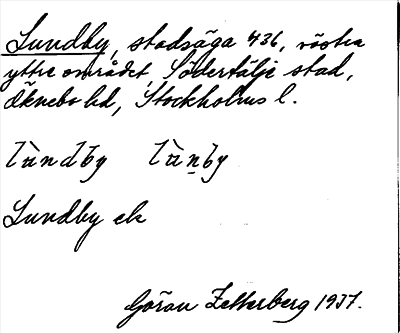 Lundby, stadsäga 436, västra
yttre området, Södertälje stad,
Öknebo hd, Stockholms l.
lùndby lùn̲by
Lundby ek
Göran Zetterberg 1937.